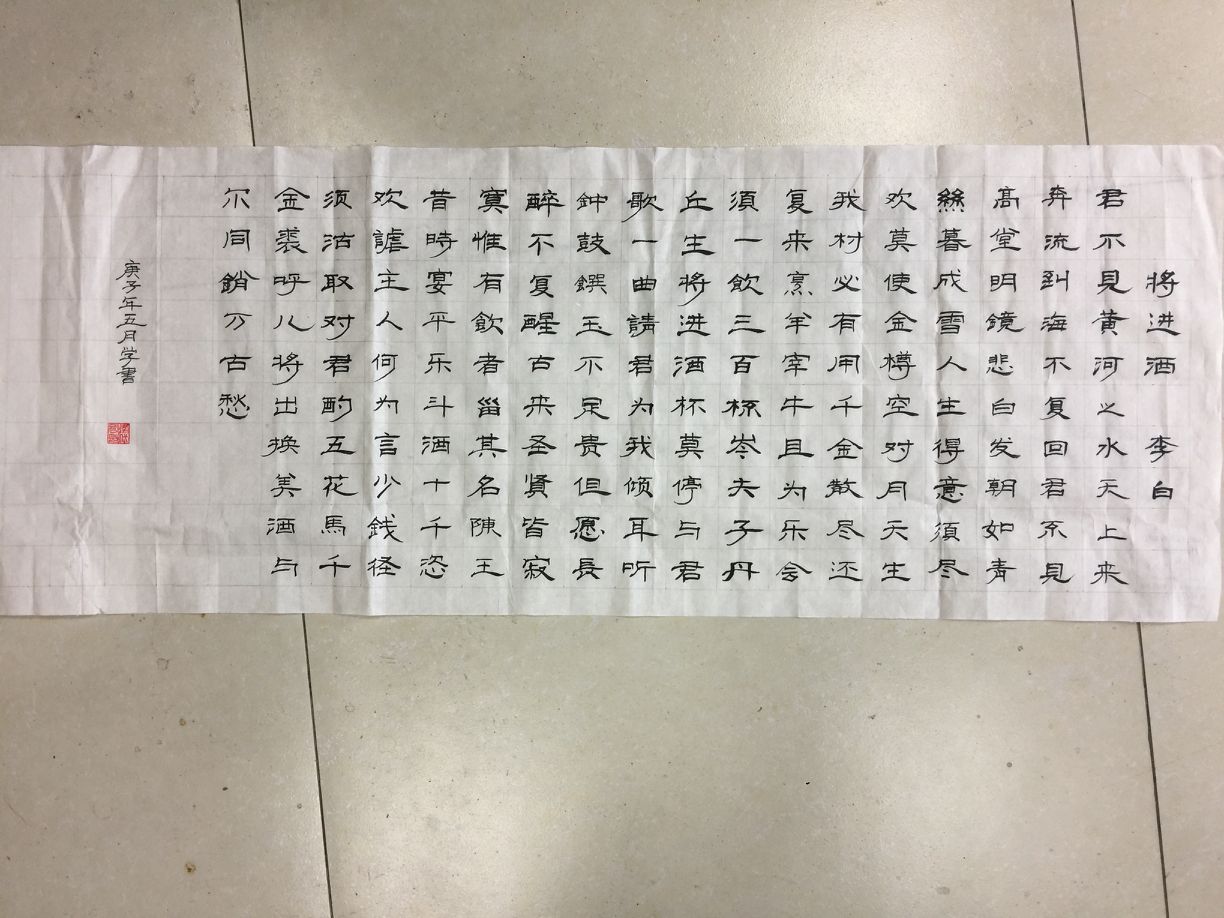 将进酒 李白
君不見黄河之水天上来
奔流到海不复回君不見
高堂明鏡悲白发朝如青
絲暮成雪人生得意須尽
欢莫使金樽空对月天生
我材必有用千金散尽还
复来烹羊宰牛且为乐会
須一飲三百杯岑夫子丹
丘生将进酒杯莫停与君
歌一曲請君为我倾耳听
鈡鼓饌玉不足贵但愿長
醉不复醒古来圣賢皆寂
寞惟有飲者畄其名陳王
昔時宴平乐斗酒十千恣
欢謔主人何为言少銭径
须沽取对君酌五花馬千
金裘呼儿将出换美酒与
尔同銷万古愁
庚子年五月学書